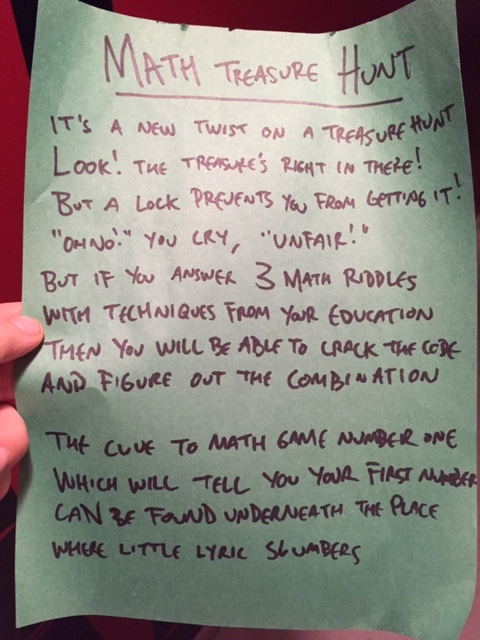 MATH TREASURE HUNT
IT'S A NEW TWIST ON A TREASURE HUNT
LOOK! THE TREASURE'S RIGHT IN THERE!
BUT A LOCK PREVENTS YOU FROM GETTING IT!
"OH NO!" YOU CRY, "UNFAIR!"
BUT IF YOU ANSWER 3 MATH RIDDLES
WITH TECHNIQUES FROM YOUR EDUCATION
THEN YOU WILL BE ABLE TO CRACK THE CODE
AND FIGURE OUT THE COMBINATION
THE CLUE TO MATH GAME NUMBER ONE
WHICH WILL TELL YOU YOUR FIRST NUMBER
CAN BE FOUND UNDERNEATH THE PLACE
WHERE LITTLE LYRIC SLUMBERS